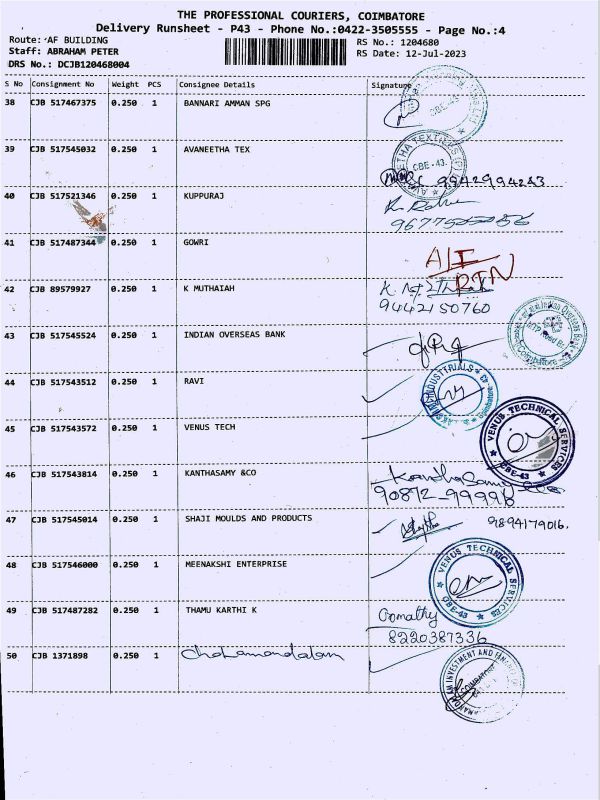 THE PROFESSIONAL COURIERS, COIMBATORE
Delivery Runsheet - P43 - Phone No.:0422-3505555 - Page No.:4
Route: AF BUILDING
RS No.: 1204680
Staff: ABRAHAM PETER
RS Date: 12-Jul-2023
DRS No.: DCJB120468004
S No Consignment No Weight PCS Consignee Details Signature
38 CJB 517467375 0.250 1 BANNARI AMMAN SPG
CBE-43
39 CJB 517545032 0.250 1 AVANEETHA TEX
CBE-43.
9942994243
40 CJB 517521346 0.250 1 KUPPURAJ
41 CJB 517487344 0.250 1 GOWRI
RTN
42 CJB 89579927 0.250 1 K MUTHAIAH
9442150760
43 CJB 517545524 0.250 1 INDIAN OVERSEAS BANK
44 CJB 517543512 0.250 1 RAVI
45 CJB 517543572 0.250 1 VENUS TECH
VENUS TECHNICAL SERVICES
CBE-43
46 CJB 517543814 0.250 1 KANTHASAMY &CO
90872-99996
47 CJB 517545014 0.250 1 SHAJI MOULDS AND PRODUCTS
9894179016.
48 CJB 517546000 0.250 1 MEENAKSHI ENTERPRISE
VENUS TECHNICAL SERVICES
CBE-43
49 CJB 517487282 0.250 1 THAMU KARTHI K
Gomathy
8220387336
50 CJB 1371898 0.250 1 Cholamandalam
COIMBATORE